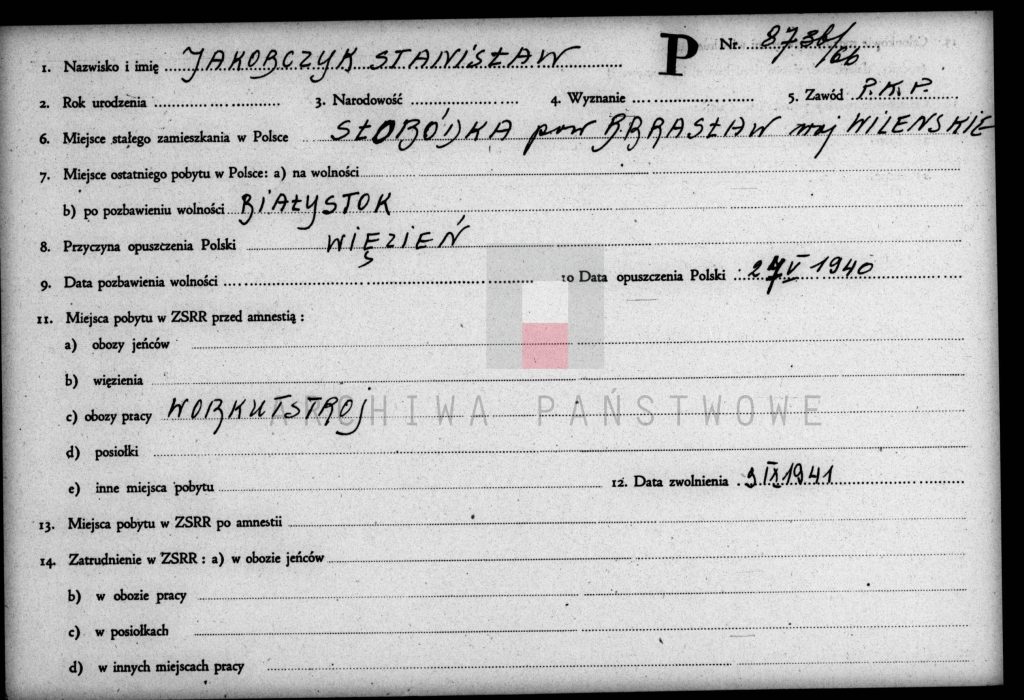 P Nr. 8736/66
1. Nazwisko i imię JAKOBCZYK STANISŁAW
2. Rok urodzenia 3. Narodowość 4. Wyznanie 5. Zawód P.K.P.
6. Miejsce stałego zamieszkania w Polsce SŁOBÓDKA pow BRASŁAW woj WILENSKIE
7. Miejsce ostatniego pobytu w Polsce: a) na wolności
b) po pozbawieniu wolności BIAŁYSTOK
8. Przyczyna opuszczenia Polski WIĘZIEŃ
9. Data pozbawienia wolności 10 Data opuszczenia Polski : 27 V 1940
11. Miejsca pobytu w ZSRR przed amnestią :
a) obozy jeńców
b) więzienia
c) obozy pracy WORKUTSTROJ
ARCHIWA PAŃSTWOWE
d) posiołki
e) inne miejsca pobytu 12. Data zwolnienia 9 IX 1941
13. Miejsca pobytu w ZSRR po amnestii
14. Zatrudnienie w ZSRR : a) w obozie jeńców
b) w obozie pracy
c) w posiołkach
d) w innych miejscach pracy